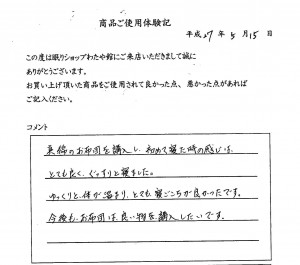 商品ご使用体験記
平成27年5月15日
この度は眠りショップわたや館にご来店いただきまして誠に
ありがとうございます。
お買い上げ頂いた商品をご使用されて良かった点、悪かった点があれば
ご記入ください。
コメント
真綿のお布団を購入し、初めて寝た時の感じは、
とても良く、ぐっすりと寝ました。
ゆっくりと、体が温まり、とても、寝ごこちが良かったです。
今後も、お布団は、良い物を購入したいです。